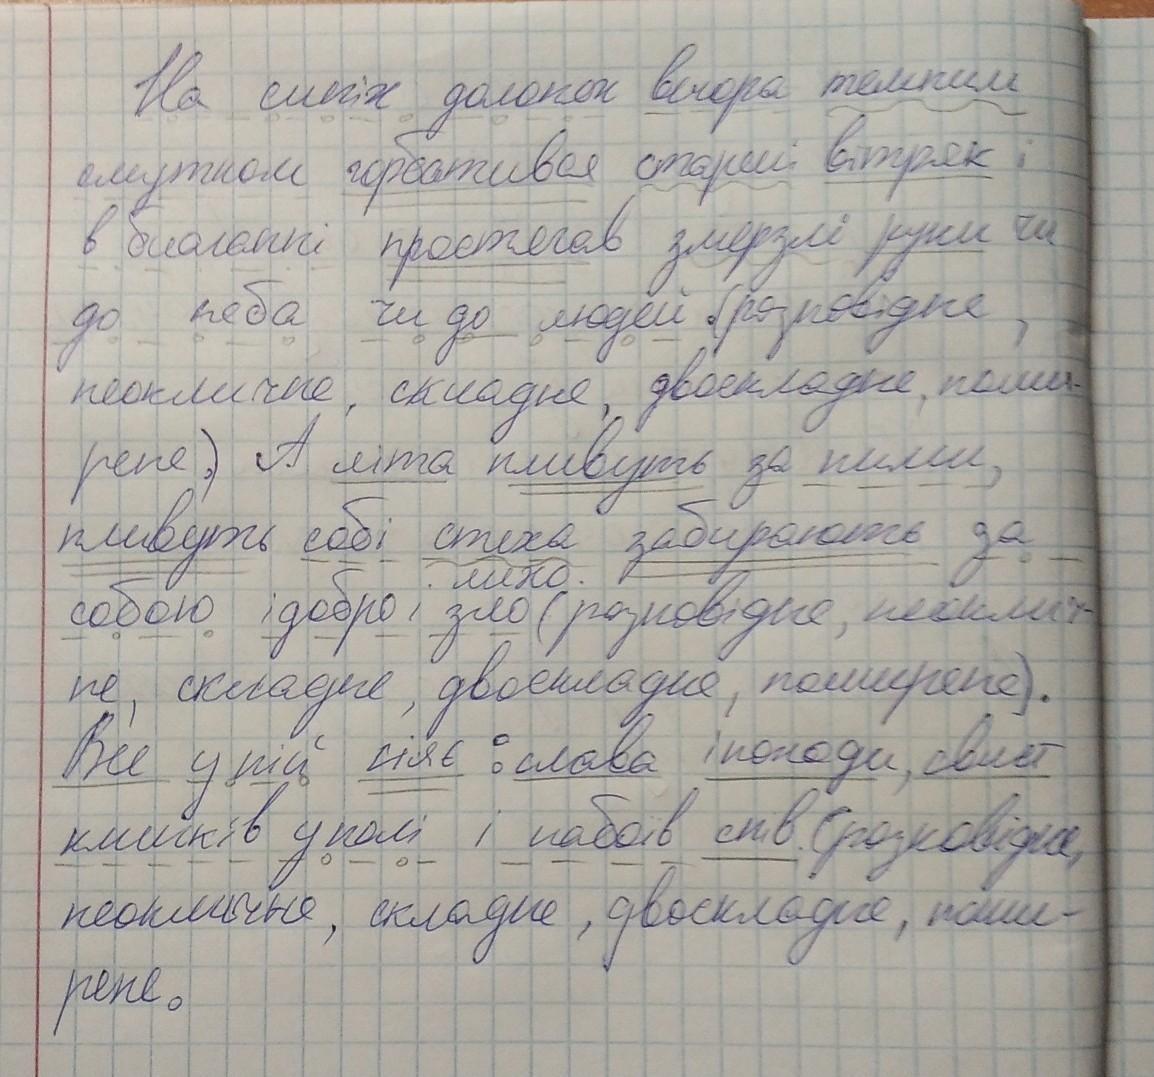 На синіх долонях вечора темним
смутком горбатився старий вітряк і
в благанні простягав змерзлі руки чи
до неба чи до людей (розповідне,
неокличне, складне, двоскладне, поши-
рене). А літа пливуть за ними,
пливуть собі стиха забирають за
лихо.
собою і добро і зло (розповідне, неоклич-
не, складне, двоскладне, поширене).
Все у ній сіяє: слава і походи, свист
клинків у полі і набоїв спів. (розповідне,
неокличне, складне, двоскладне, поши-
рене.